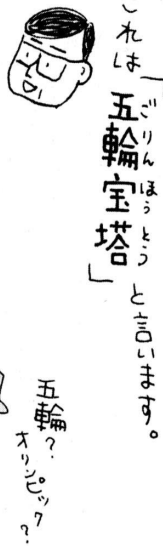 これは「五輪宝塔」と言います。
ごりんほうとう
五輪?
オリンピック?